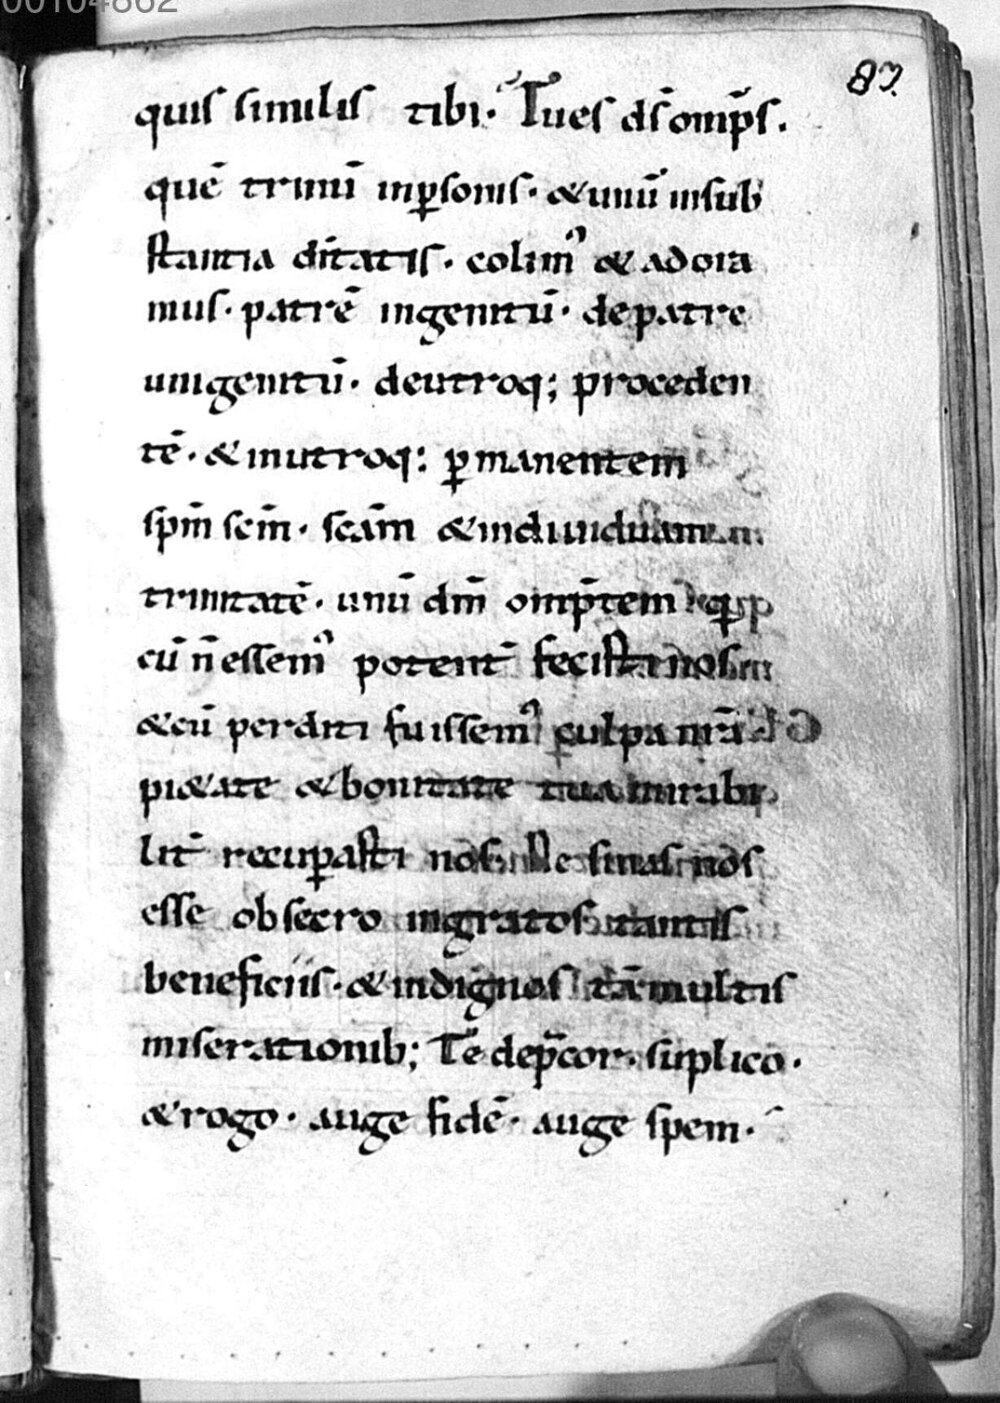 00104862
87.
quis similis tibi· Tu es ds̄ omp̄s.
quē trinū inꝑsonis· & unū insub
stantia dītatis· colimꝰ & adora
mus· patrē ingenitū· depatre
unigenitū· deutroq; proceden
tē· & inutroq: ꝑmanentem
spm̄ scm̄· scām & indiuiduam
trinitatē· unū dm̄ omp̄tem
cū n̄ essemꝰ potent̄ fecisti nos
& cū perditi fuissemꝰ culpa nr̄a
pi&ate & bonitate tua mirabi
lit̄ recuꝑasti nos· Ne sinas nos
esse obsecro ingratos tantis
beneficiis· & indignos tā multis
miserationib; Te dep̄cor· suplico·
& rogo· auge fidē· auge spem·